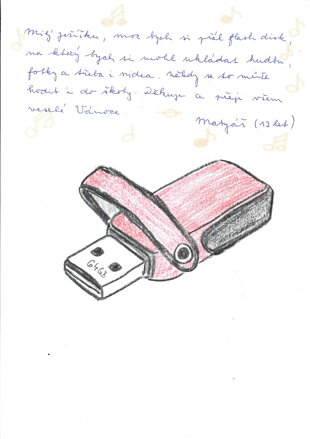 Milý ježíšku, moc bych si přál flash disk,
na který bych si mohl ukládat hudbu,
fotky a třeba i videa. Někdy se to může
hodit i do školy. Děkuji a přeji všem
veselé Vánoce.
Matyáš (12 let)
64GB